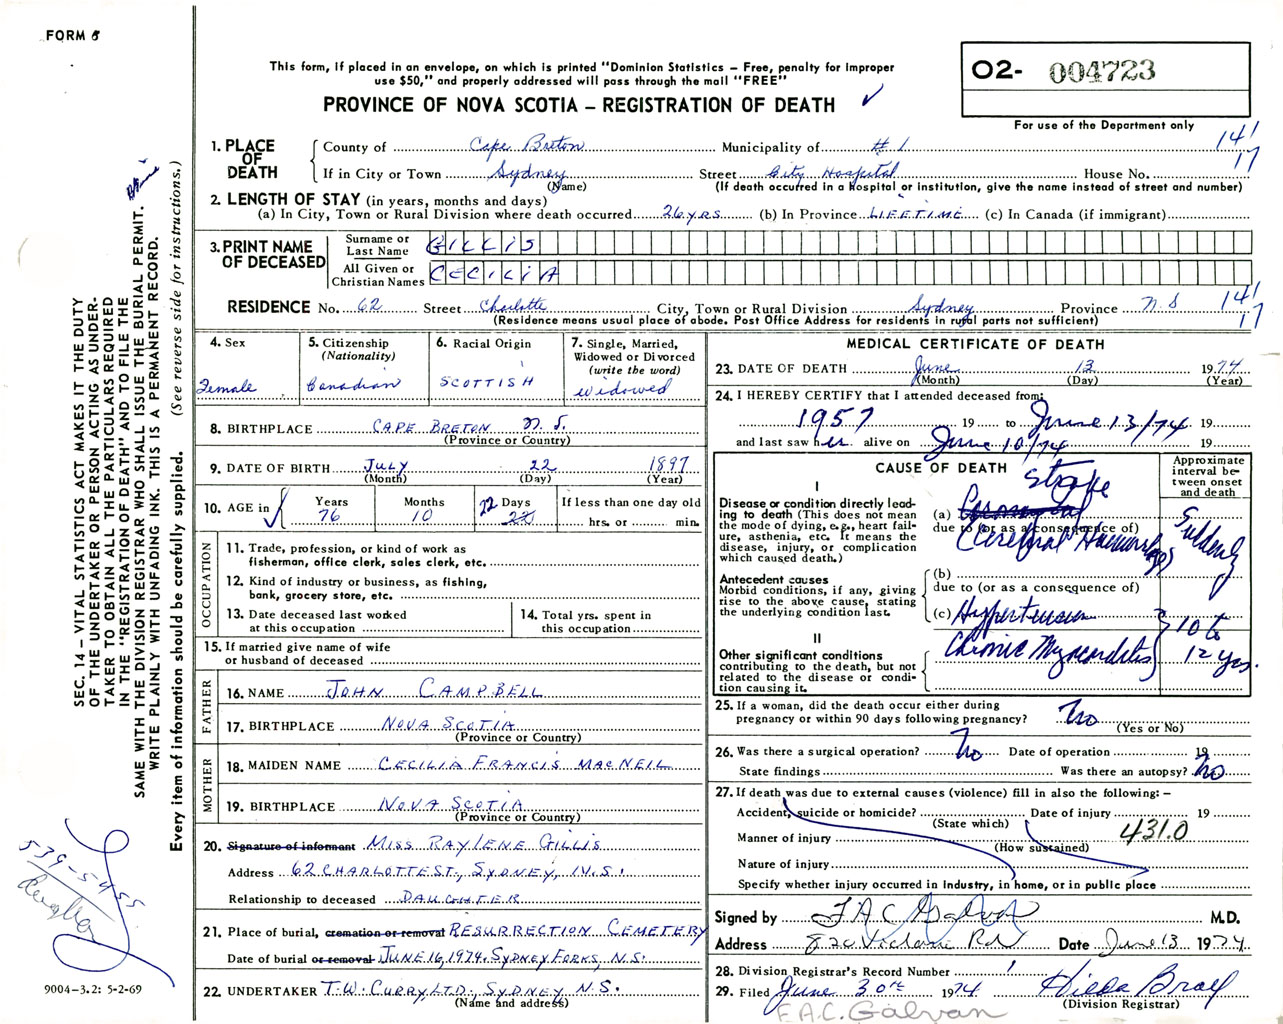 FORM 6
This form, if placed in an envelope, on which is printed "Dominion Statistics – Free, penalty for improper
use $50," and properly addressed will pass through the mail "FREE"
PROVINCE OF NOVA SCOTIA – REGISTRATION OF DEATH ✓
02- 004723
For use of the Department only
1. PLACE OF DEATH County of Cape Breton Municipality of # 1 141
If in City or Town Sydney Street City Hospital House No. 17
(Name) (If death occurred in a hospital or institution, give the name instead of street and number)
2. LENGTH OF STAY (in years, months and days)
(a) In City, Town or Rural Division where death occurred 26 yrs (b) In Province LIFETIME (c) In Canada (if immigrant)
3. PRINT NAME OF DECEASED Surname or Last Name GILLIS
All Given or Christian Names CECILIA
RESIDENCE No. 62 Street Charlotte City, Town or Rural Division Sydney Province N.S 141
(Residence means usual place of abode. Post Office Address for residents in rural parts not sufficient) 17
4. Sex Female
5. Citizenship (Nationality) Canadian
6. Racial Origin SCOTTISH
7. Single, Married, Widowed or Divorced (write the word) Widowed
8. BIRTHPLACE CAPE BRETON N.S.
(Province or Country)
9. DATE OF BIRTH JULY 22 1897
(Month) (Day) (Year)
10. AGE in Years 76 Months 10 Days 22 22 If less than one day old hrs. or min.
OCCUPATION
11. Trade, profession, or kind of work as
fisherman, office clerk, sales clerk, etc.
12. Kind of industry or business, as fishing,
bank, grocery store, etc.
13. Date deceased last worked at this occupation
14. Total yrs. spent in this occupation
15. If married give name of wife
or husband of deceased
FATHER
16. NAME JOHN CAMPBELL
17. BIRTHPLACE NOVA SCOTIA
(Province or Country)
MOTHER
18. MAIDEN NAME CECILIA FRANCIS MACNEIL
19. BIRTHPLACE NOVA SCOTIA
(Province or Country)
20. Signature of informant MISS RAYLENE GILLIS
Address 62 CHARLOTTE ST., SYDNEY, N.S.
Relationship to deceased DAUGHTER
21. Place of burial, cremation or removal RESURRECTION CEMETERY
Date of burial or removal JUNE 16, 1974. SYDNEY FORKS, N.S.
22. UNDERTAKER T.W. CURRY, LTD., SYDNEY N.S.
(Name and address)
MEDICAL CERTIFICATE OF DEATH
23. DATE OF DEATH June 13 1974
(Month) (Day) (Year)
24. I HEREBY CERTIFY that I attended deceased from:
1957 19 to June 13/74 19
and last saw her alive on June 10/74 19
CAUSE OF DEATH
Approximate interval between onset and death
I
Disease or condition directly leading to death (This does not
the mode of dying, e.g., heart failure, asthenia, etc. It means the
disease, injury, or complication
which caused death.)
(a) Stroke
due to (or as a consequence of)
Cerebral Haemorrhage Suddenly
Antecedent causes
Morbid conditions, if any, giving
rise to the above cause, stating
the underlying condition last.
(b)
due to (or as a consequence of)
(c) Hypertension
II
Other significant conditions
contributing to the death, but not
related to the disease or condition causing it.
Chronic Myocarditis 10 to 12 yrs.
25. If a woman, did the death occur either during
pregnancy or within 90 days following pregnancy? No
(Yes or No)
26. Was there a surgical operation? No Date of operation 19
State findings Was there an autopsy? No
27. If death was due to external causes (violence) fill in also the following: –
Accident, suicide or homicide? Date of injury 19
(State which)
Manner of injury 431.0
(How sustained)
Nature of injury
Specify whether injury occurred in Industry, in home, or in public place
Signed by F A C Galvan M.D.
Address Victoria Rd Date June 13 1974
28. Division Registrar's Record Number
29. Filed June 30th 1974 Hilda Bray
(Division Registrar)
F.A.C. Galvan
SEC. 14 – VITAL STATISTICS ACT MAKES IT THE DUTY
OF THE UNDERTAKER OR PERSON ACTING AS UNDERTAKER TO OBTAIN ALL THE PARTICULARS REQUIRED
IN THE "REGISTRATION OF DEATH" AND TO FILE THE
SAME WITH THE DIVISION REGISTRAR WHO SHALL ISSUE THE BURIAL PERMIT.
WRITE PLAINLY WITH UNFADING INK. THIS IS A PERMANENT RECORD.
Every item of information should be carefully supplied. (See reverse side for instructions.)
539-5455
9004-3.2: 5-2-69